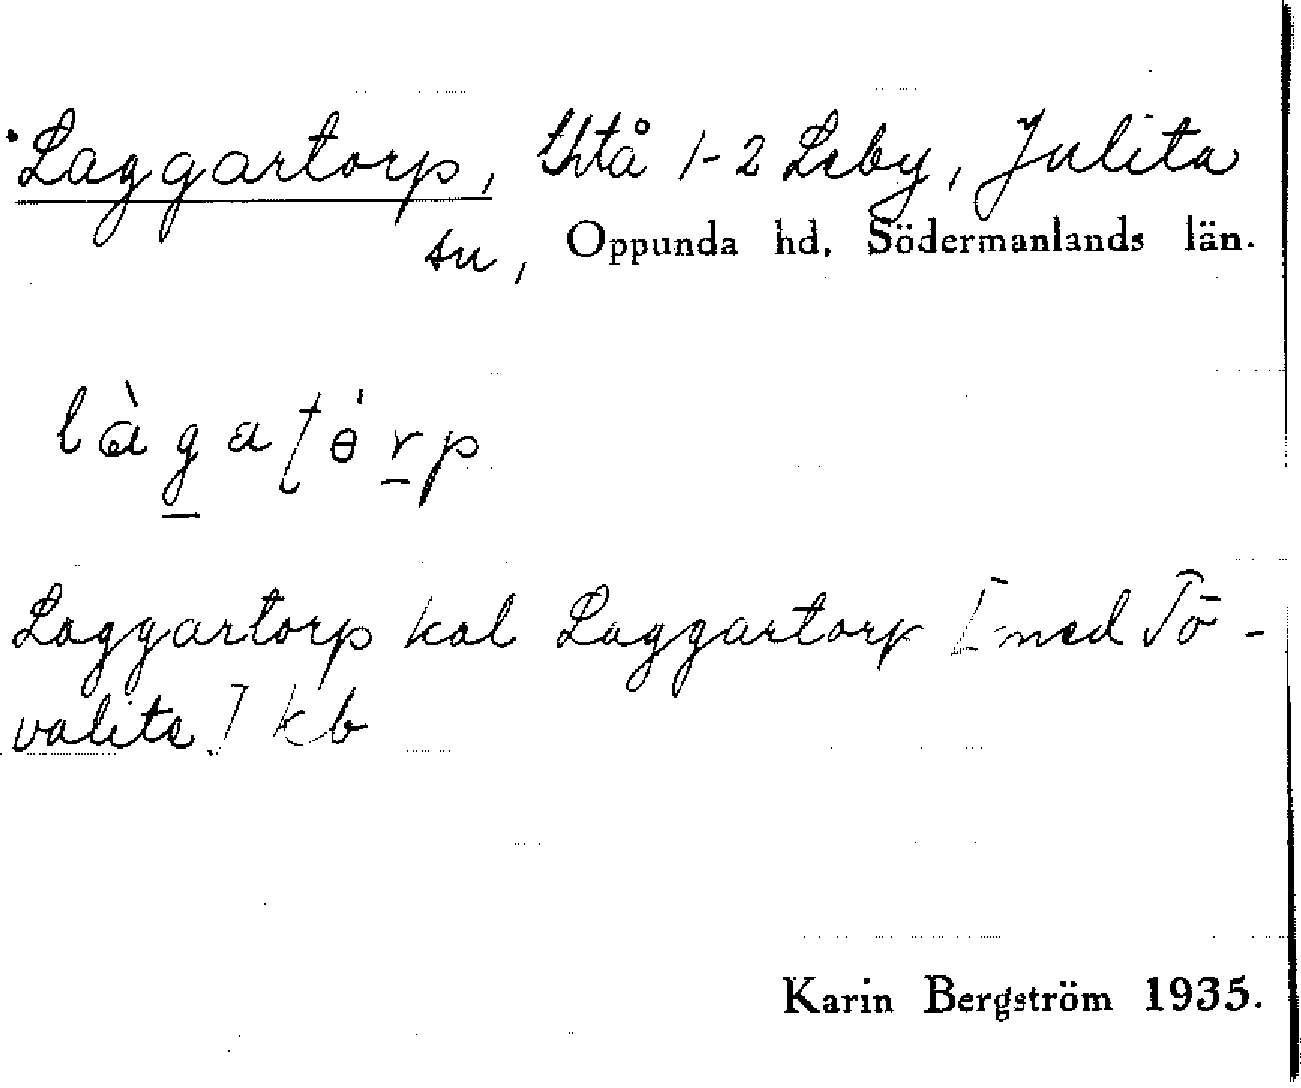 Laggartorp, thtå 1-2 Leby, Julita
sn, Oppunda hd, Södermanlands län.
làgatörp
Laggartorp kal Laggartorp [med Tö-
valita.] kb
Karin Bergström 1935.